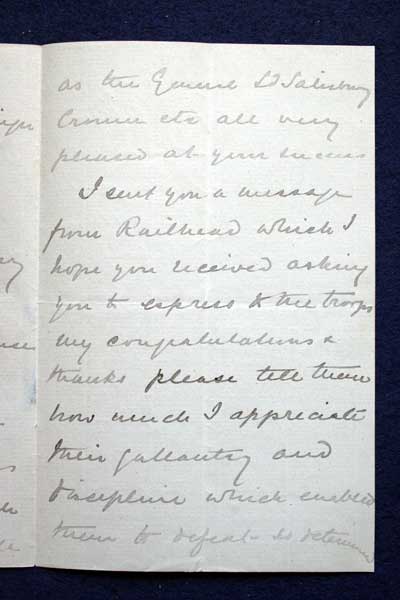 as the General Ld Salisbury
Cromer etc all very
pleased at your success
I sent you a message
from Railhead which I
hope you received asking
you to express to the troops
my congratulations &
thanks please tell them
how much I appreciate
their gallantry and
discipline which enabled
them to defeat so determined